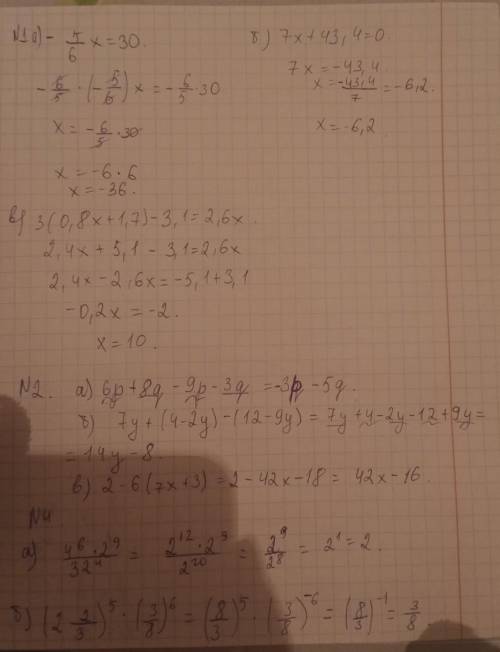 N1 а) - 5/6 x = 30.
- 6/5 · (- 5/6) x = - 6/5 · 30
x = - 6/5 · 30
x = -6 · 6
x = -36.
б) 7x + 43,4 = 0.
7x = -43,4.
x = -43,4/7 = -6,2.
x = -6,2
в) 3(0,8x + 1,7) - 3,1 = 2,6x.
2,4x + 5,1 - 3,1 = 2,6x
2,4x - 2,6x = -5,1 + 3,1
-0,2x = -2.
x = 10.
N2. а) 6p + 8q - 9p - 3q = -3p - 5q.
б) 7y + (4-2y) - (12-9y) = 7y + 4 - 2y - 12 + 9y =
= 14y - 8.
в) 2 - 6(7x+3) = 2 - 42x - 18 = 42x - 16.
N4
а) 4⁶ · 2⁹ / 32⁴ = 2¹² · 2⁹ / 2²⁰ = 2⁹ / 2⁸ = 2¹ = 2.
б) (2 2/3)⁵ · (3/8)⁶ = (8/3)⁵ · (3/8)⁻⁶ = (8/3)⁻¹ = 3/8.